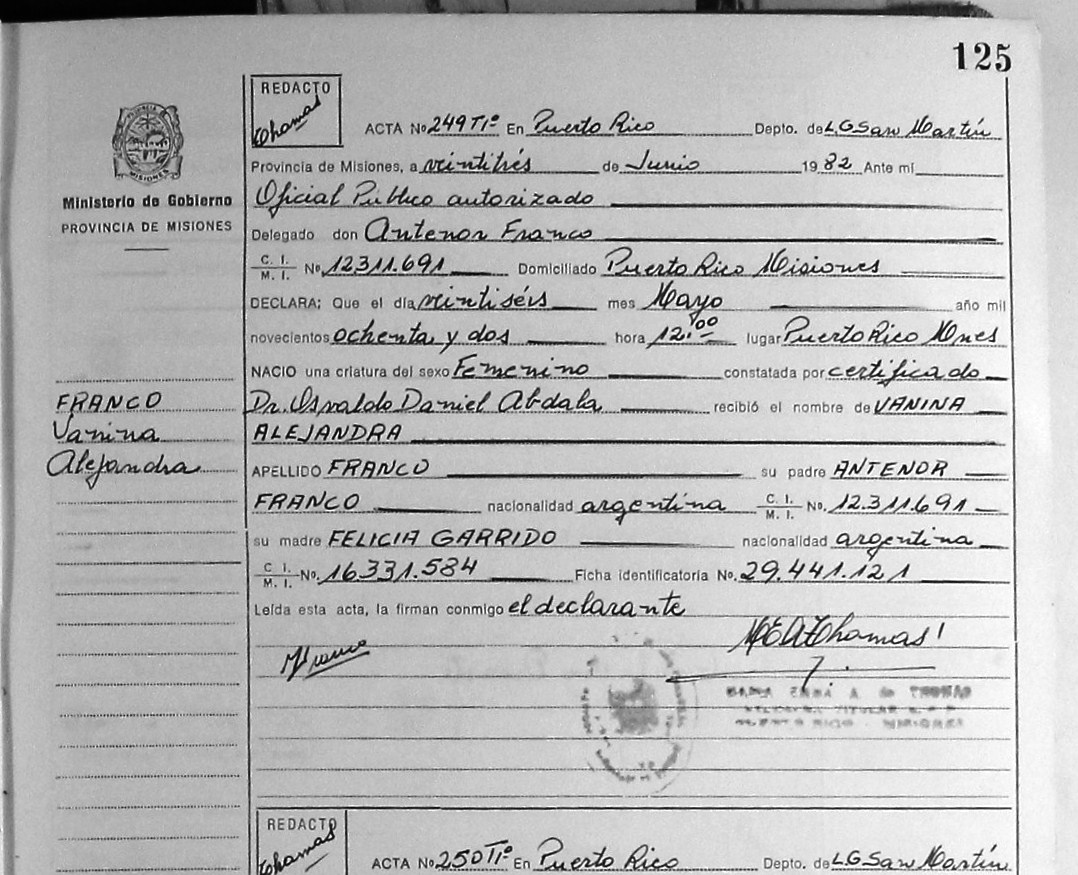 125
REDACTO
Thamas
ACTA No 249 Tº1º En Puerto Rico Depto. de L.G.San Martín
Provincia de Misiones, a veintitrés de Junio 1982 Ante mí
Oficial Público autorizado
Delegado don Antenor Franco
C. I. M. I. No. 12.311.691 Domiciliado Puerto Rico Misiones
DECLARA; Que el día veintiséis mes Mayo año mil
novecientos ochenta y dos hora 12:00 lugar Puerto Rico Mnes
NACIO una criatura del sexo Femenino constatada por certificado
Dr. Osvaldo Daniel Abdala recibió el nombre de VANINA
ALEJANDRA
APELLIDO FRANCO su padre ANTENOR
FRANCO nacionalidad argentina C. I. M. I. No. 12.311.691
su madre FELICIA GARRIDO nacionalidad argentina
C. I. M. I. No. 16.331.584 Ficha identificatoria No. 29.441.121
Leída esta acta, la firman conmigo el declarante
PROVINCIA DE MISIONES
Ministerio de Gobierno
PROVINCIA DE MISIONES
FRANCO
Vanina
Alejandra
Franco
MEAThamas
MARIA EMMA A. de THOMAS
PUERTO RICO - MISIONES
REDACTO
Thamas
ACTA No 250 Tº1º En Puerto Rico Depto. de L.G.San Martín